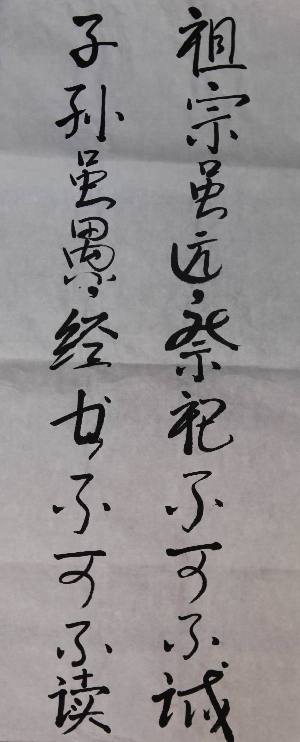 祖宗虽远祭祀不可不诚
子孙虽愚经书不可不读